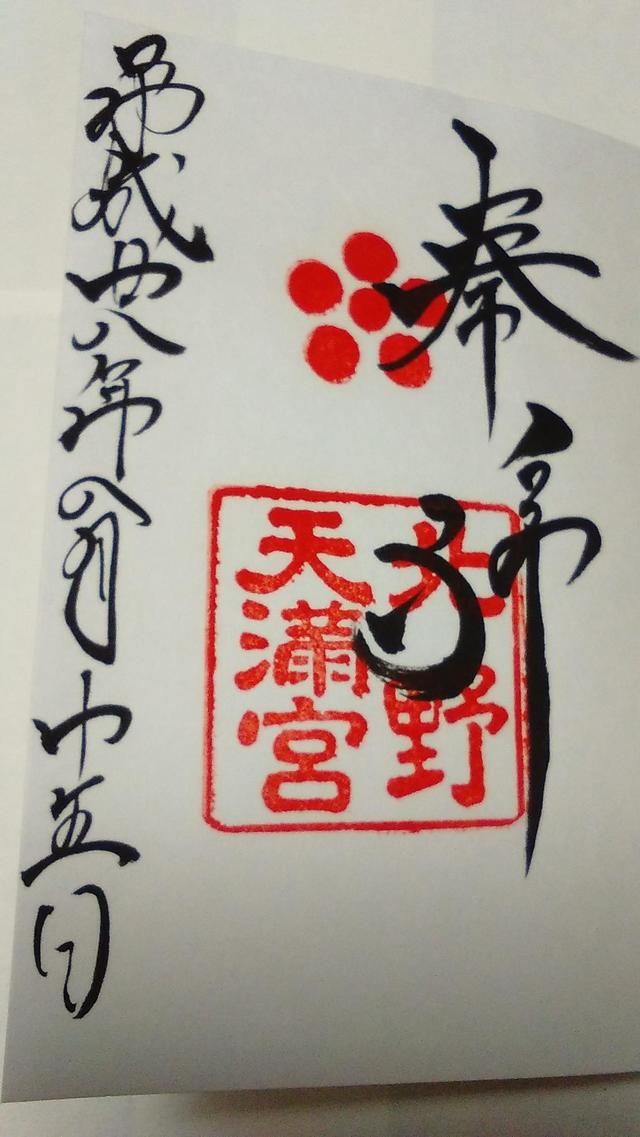 奉拝
北野
天滿宮
平成廿八年八月廿五日